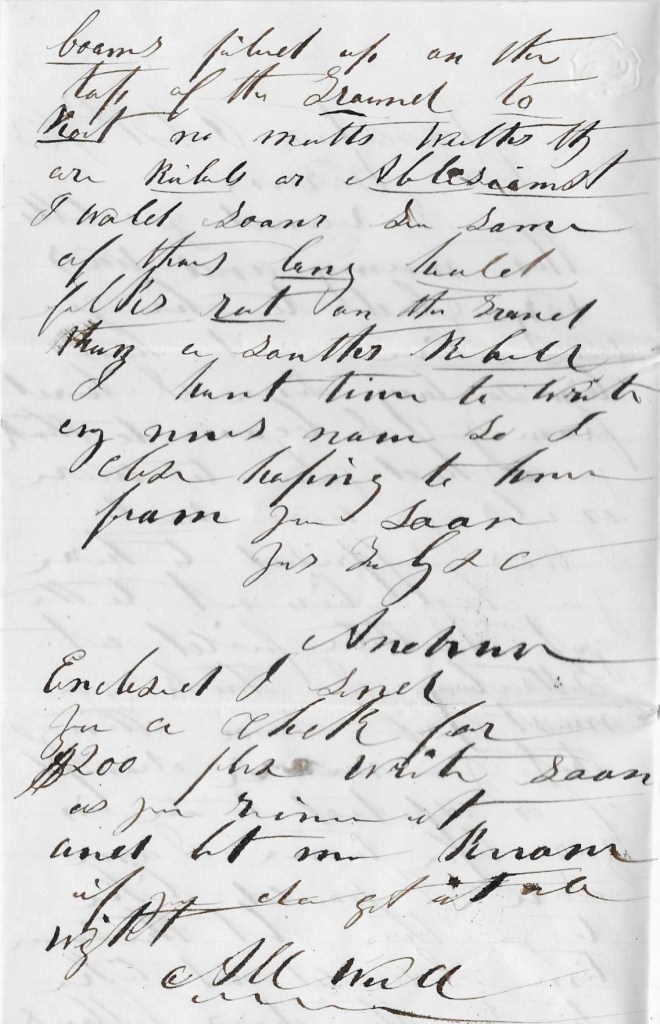 boams piled up on the
top of the Ground to
Roat no matts wethes thy
are Rebels or Ablesiamst
I wald soanr see same
of thous lang haled
fellers rot on the Grand
than a souther Rebell
I havt time to write
eny mors now so I
close hoping to hear
fram you soon
yrs Truly & C
Andrew
Enclosed I send
you a chek for
$200 plse write soon
as you recive it
and let me Know
if you do get it all
wright
All Well